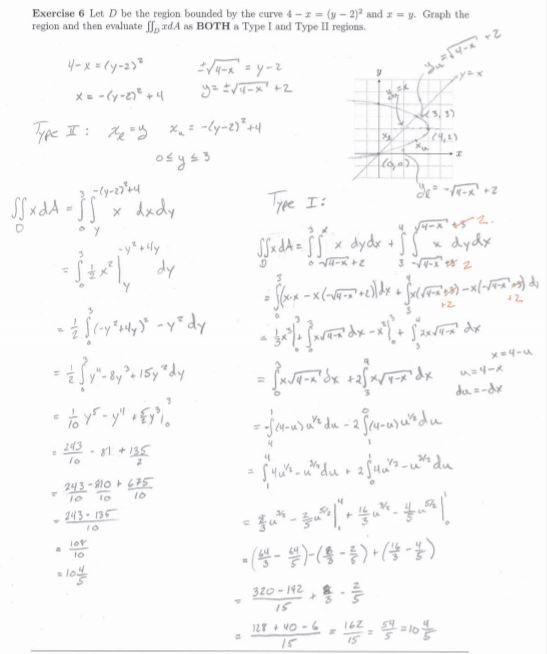 Exercise 6 Let D be the region bounded by the curve 4 − x = (y − 2)² and x = y. Graph the
region and then evaluate ∬_D xdA as BOTH a Type I and Type II regions.
4-x = (y-2)²
±√(4-x) = y-2
x = -(y-2)² + 4
y = ±√(4-x) + 2
y_u = √(4-x) + 2
y = x
(3,3)
(4,2)
(0,0)
y_l = -√(4-x) + 2
Type II: x_l = y x_u = -(y-2)² + 4
0 ≤ y ≤ 3
∬_D x dA = ∫_0^3 ∫_y^{-(y-2)²+4} x dx dy
= ∫_0^3 ½x² |_y^{-y²+4y} dy
= ½ ∫_0^3 (-y²+4y)² - y² dy
= ½ ∫_0^3 y⁴ - 8y³ + 15y² dy
= 1/10 y⁵ - y⁴ + 5/2 y³ |_0^3
= 243/10 - 81 + 135/2
= 243/10 - 810/10 + 675/10
= 243 - 135 / 10
= 108/10
= 10 4/5
Type I:
= ∫_0^3 x√(4-x) dx + 2∫_3^4 x√(4-x) dx
x = 4-u
u = 4-x
du = -dx
= -∫_4^1 (4-u)u^{1/2} du - 2∫_1^0 (4-u)u^{1/2} du
= ∫_1^4 4u^{1/2} - u^{3/2} du + 2∫_0^1 4u^{1/2} - u^{3/2} du
= 8/3 u^{3/2} - 2/5 u^{5/2} |_1^4 + 16/3 u^{3/2} - 4/5 u^{5/2} |_0^1
= (64/3 - 64/5) - (8/3 - 2/5) + (16/3 - 4/5)
= 320 - 192 / 15 + 8/3 - 2/5
= 128 + 40 - 6 / 15 = 162/15 = 54/5 = 10 4/5